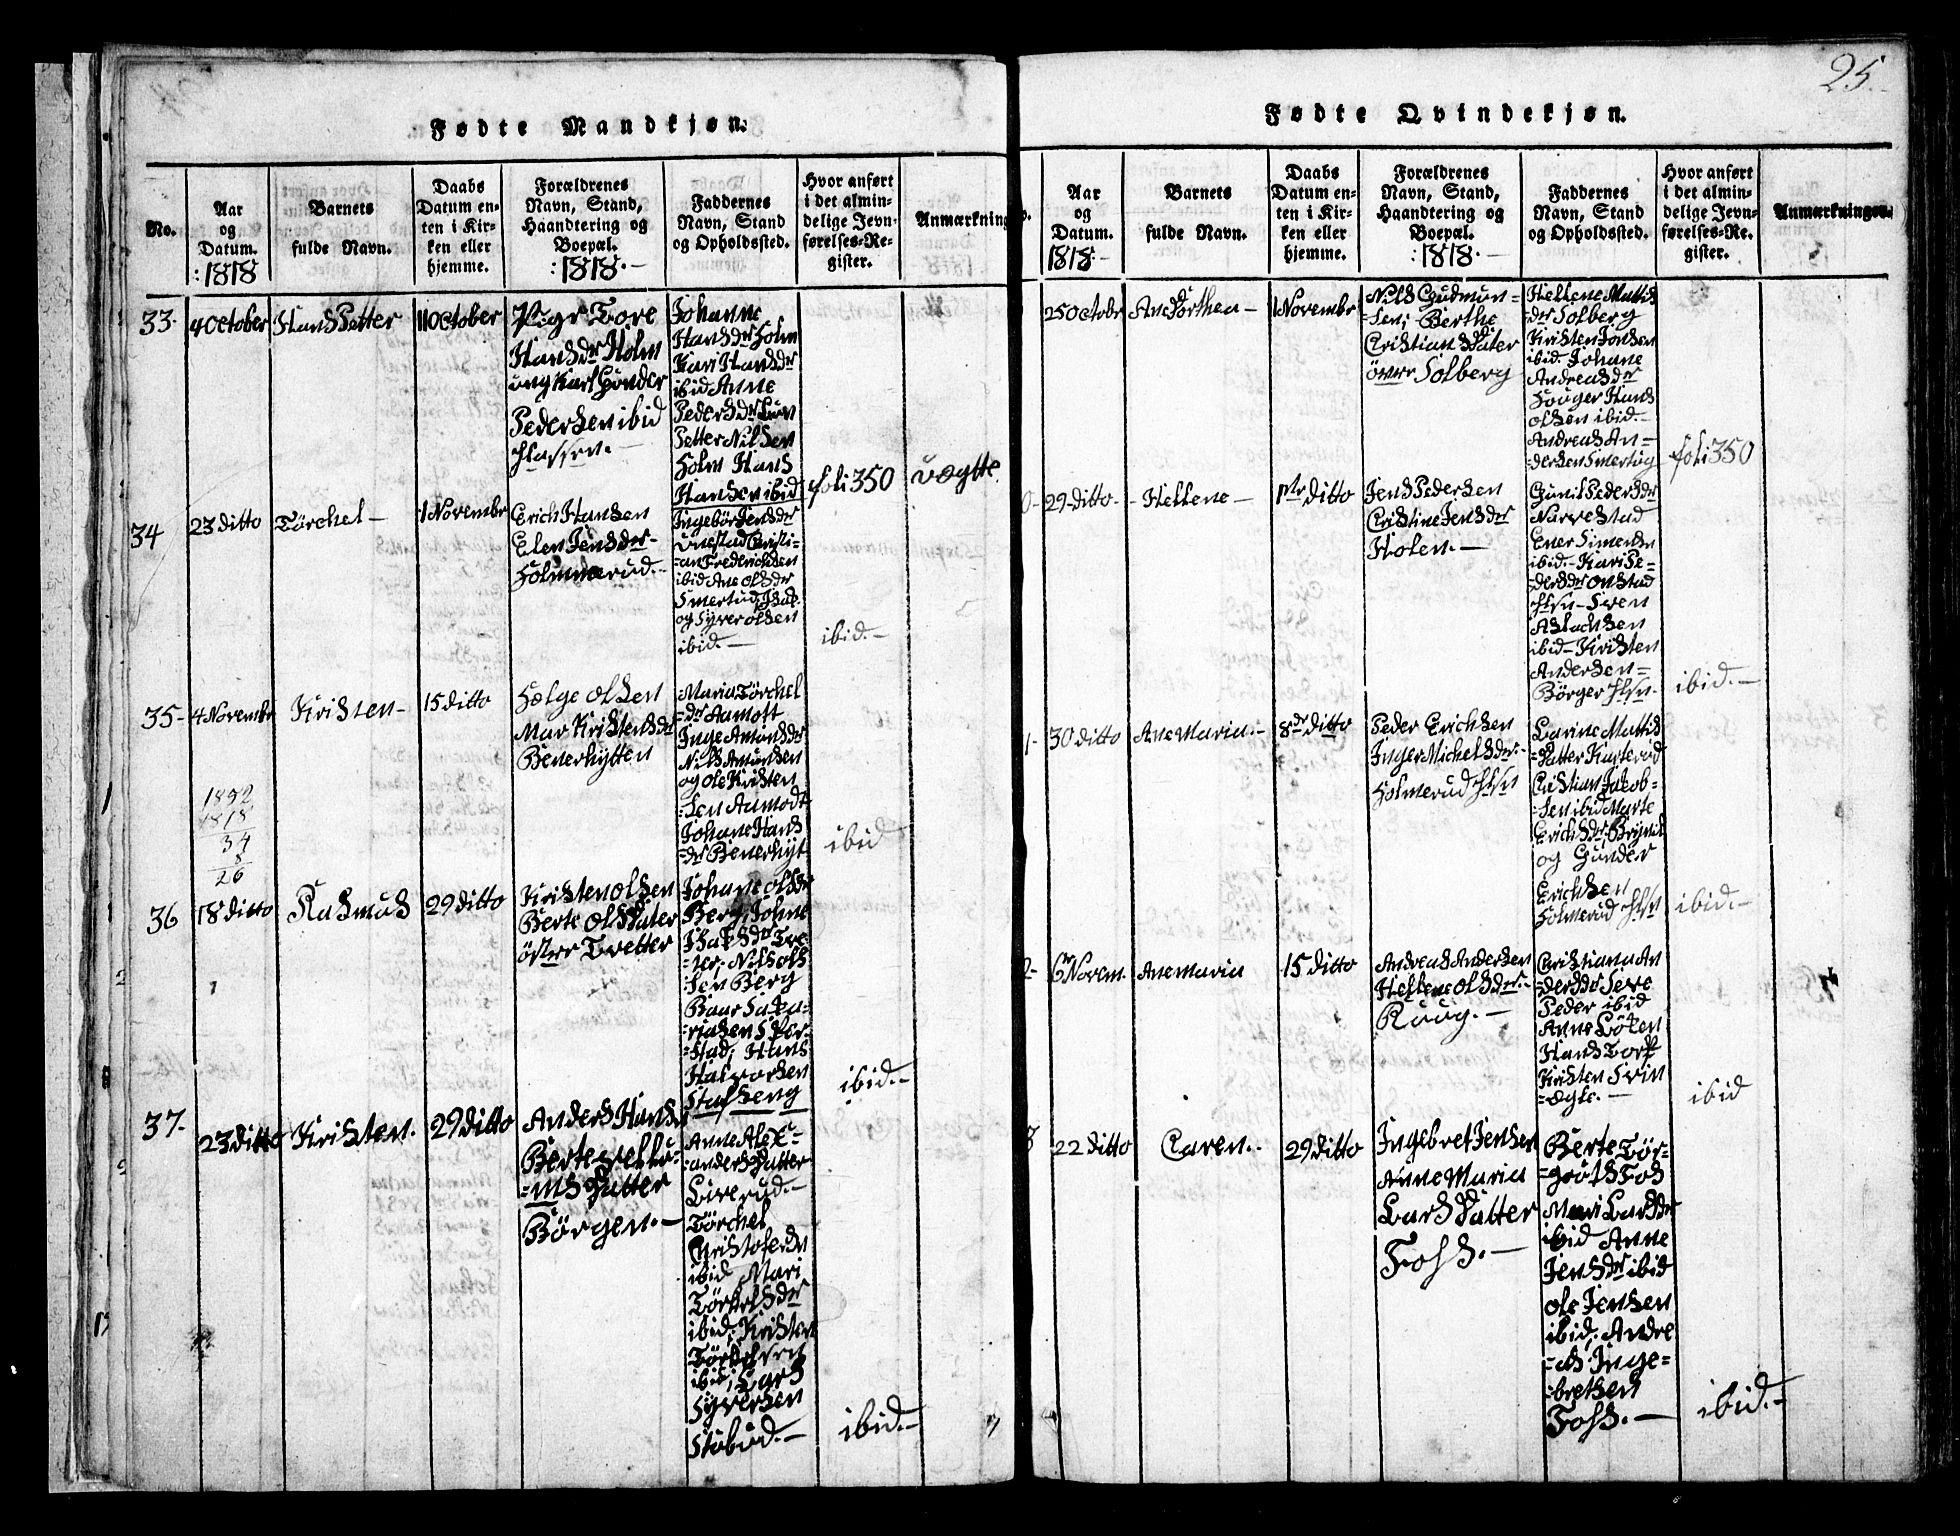 25.
Fødte Mandkjøn.
No.
Aar
og
Datum.
:1818
Barnets
fulde Navn.
Daabs
Datum en-
ten i Kir-
ken eller
hjemme.
Forældrenes
Navn, Stand,
Haandtering og
Boepæl.
:1818.-
Faddernes
Navn, Stand
og Opholdssted.
Hvor anført
i det almin-
delige Jevn-
førelses-Re-
gister.
Anmærkning
33.
4 October
Hans Petter
11 October
Pige Tore
Hansdr Holm
ung Karl Gunder
Pedersen ibid
Johanne
Hansdr Holm
Kari Hansdr
ibid Anne
Pedersdr
Petter Nilsen
Holm Hans
Hansen ibid
foli 350
vægtte.
34
23 ditto
Törchel-
1 Novembr
Erich Hansen
Elen Jensdr-
Holmmerud.-
Ingebör Jensdr
Unestad Christi-
-an Frederichsen
ibid Ane Olsdr
Smertud, Isak-
og Syver Olsen
ibid.-
ibid.-
35-
4 Novembr
Kristen-
15 ditto
Hælge Olsen
Mar Kristensdr
Beverhytten
Maria Törchel
-dr Aamott
Inge Amundsdr
Nils Amundsen
og Ole Kristen
-sen Aamodt
Johane Hans
-dr Beverhyt
ibid
1852
1818
34
8
26
36
18 ditto
Rasmus
29 ditto
Kristen Olsen
Berte Olsdater
öster Tvetter
Johane Olsdr
Berg, Johne
Isaksdr Tve-
-ter, Nils Ols
-sen Berg
Baar Saka-
-riasen Sper-
-stad, Hans
Halvorsen
Stafseng
ibid.-
37.
23 ditto
Kristen.
29 ditto
Anders Hansen
Berte vellu-
-ms Datter
Börgen.-
Anne Alex-
-anders Datter
Liverud.-
Törchel
Christofersen
ibid, Mari
Törkelsdr
ibid, Kristen
Törkelsen
ibid, Lars
Syversen
Stubud.-
ibid.-
Fødte Qvindekjøn.
Aar
og
Datum.
1818-
Barnets
fulde Navn.
Daabs
Datum en-
ten i Kir-
ken eller
hjemme.
Forældrenes
Navn, Stand,
Haandtering og
Boepæl.
:1818.-
Faddernes
Navn, Stand
og Opholdssted.
Hvor anført
i det almin-
delige Jevn-
førelses-Re-
gister.
Anmærkninger.
25 Octobr
Ane Dorthea-
1 Novembr
Nils Gudmun-
-sen; Berthe
Cristians Dater
övre Solberg
Hellene Mattis
-dr Solberg
Kristen Jonsen
ibid. Johane
Andreasdr
Houger Hans
Olsen ibid.-
Andreas An-
-dersen Smertug
foli 350
29-ditto-
-Hellene-
1ste ditto
Jens Pedersen
Cristine Jensdr
Holen.-
Gunil Pedersdr
Narvestad
Ener Simensen
ibid.- Kari Pe-
-dersdr Onstad
Sven
Aslachsen
ibid- Kristen
Andersen-
Börger
ibid.-
30 ditto
Ane Maria.-
8de ditto
Peder Erichsen
Inger Michelsdr.-
Holmerud
Larine Mattis
-Datter Karterud
Cristian Jakob-
-sen ibid Marte
Erichsdr, Brynil
og Gunder
Erichsen
Holmerud
ibid.-
6 Novem.
Ane Maria
15 ditto
Andreas Andersen
Hellene Olsdr.-
Ruug.-
Christiana An
-dersdr Seve
Peder ibid
Anne Löken
Hans Torp
Kristen Svin
-degle.-
ibid
22 ditto
Caren.-
29 ditto
Ingebret Jensen
Anne Maria
Lars Datter
Foss.-
Berte Tör-
-gruts Fos
Mari Larsdr
ibid Anne
Jensdr ibid
Ole Jensen
ibid, Andre
-as Inge-
-bretsen
Foss.-
ibid.-